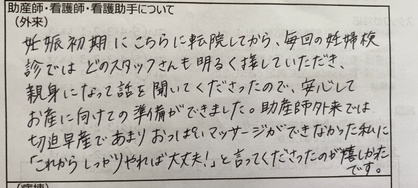 助産師・看護師・看護助手について
(外来)
妊娠初期にこちらに転院してから、毎回の妊婦検
診ではどのスタッフさんも明るく接していただき、
親身になって話を聞いてくださったので、安心して
お産に向けての準備ができました。助産師外来では
切迫早産であまりおっぱいマッサージができなかった私に
「これからしっかりやれば大丈夫!」と言ってくださったのが嬉しかった
です。